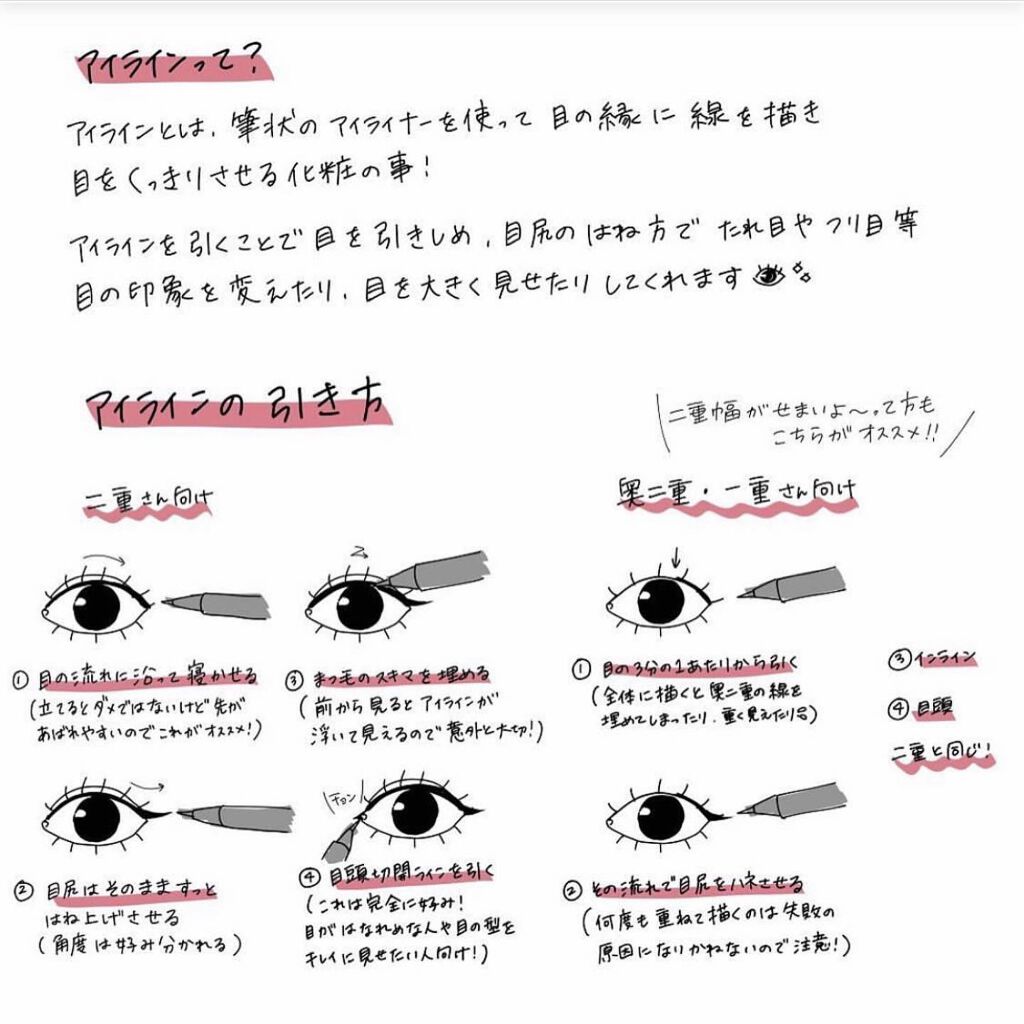 アイラインって？
アイラインとは、筆状のアイライナーを使って目の縁に線を描き
目をくっきりさせる化粧の事！
アイラインを引くことで目を引きしめ、目尻のはね方でたれ目やツリ目等
目の印象を変えたり、目を大きく見せたりしてくれます
アイラインの引き方
二重幅がせまいよ〜って方も
こちらがオススメ!!
二重さん向け
奥二重・一重さん向け
① 目の流れに沿って寝かせる
(立てるとダメではないけど先が
あばれやすいのでこれがオススメ!)
② 目尻はそのまますっと
はね上げさせる
(角度は好み分かれる)
③ まつ毛のスキマを埋める
(前から見るとアイラインが
浮いて見えるので意外と大切!)
チョン
④ 目頭切開ラインを引く
(これは完全に好み!
目がはなれめな人や目の型を
キレイに見せたい人向け!)
① 目の3分の1あたりから引く
(全体に描くと奥二重の線を
埋めてしまったり、重く見えたり)
② その流れで目尻をハネさせる
(何度も重ねて描くのは失敗の
原因になりかねないので注意!)
③ インライン
④ 目頭
二重と同じ!